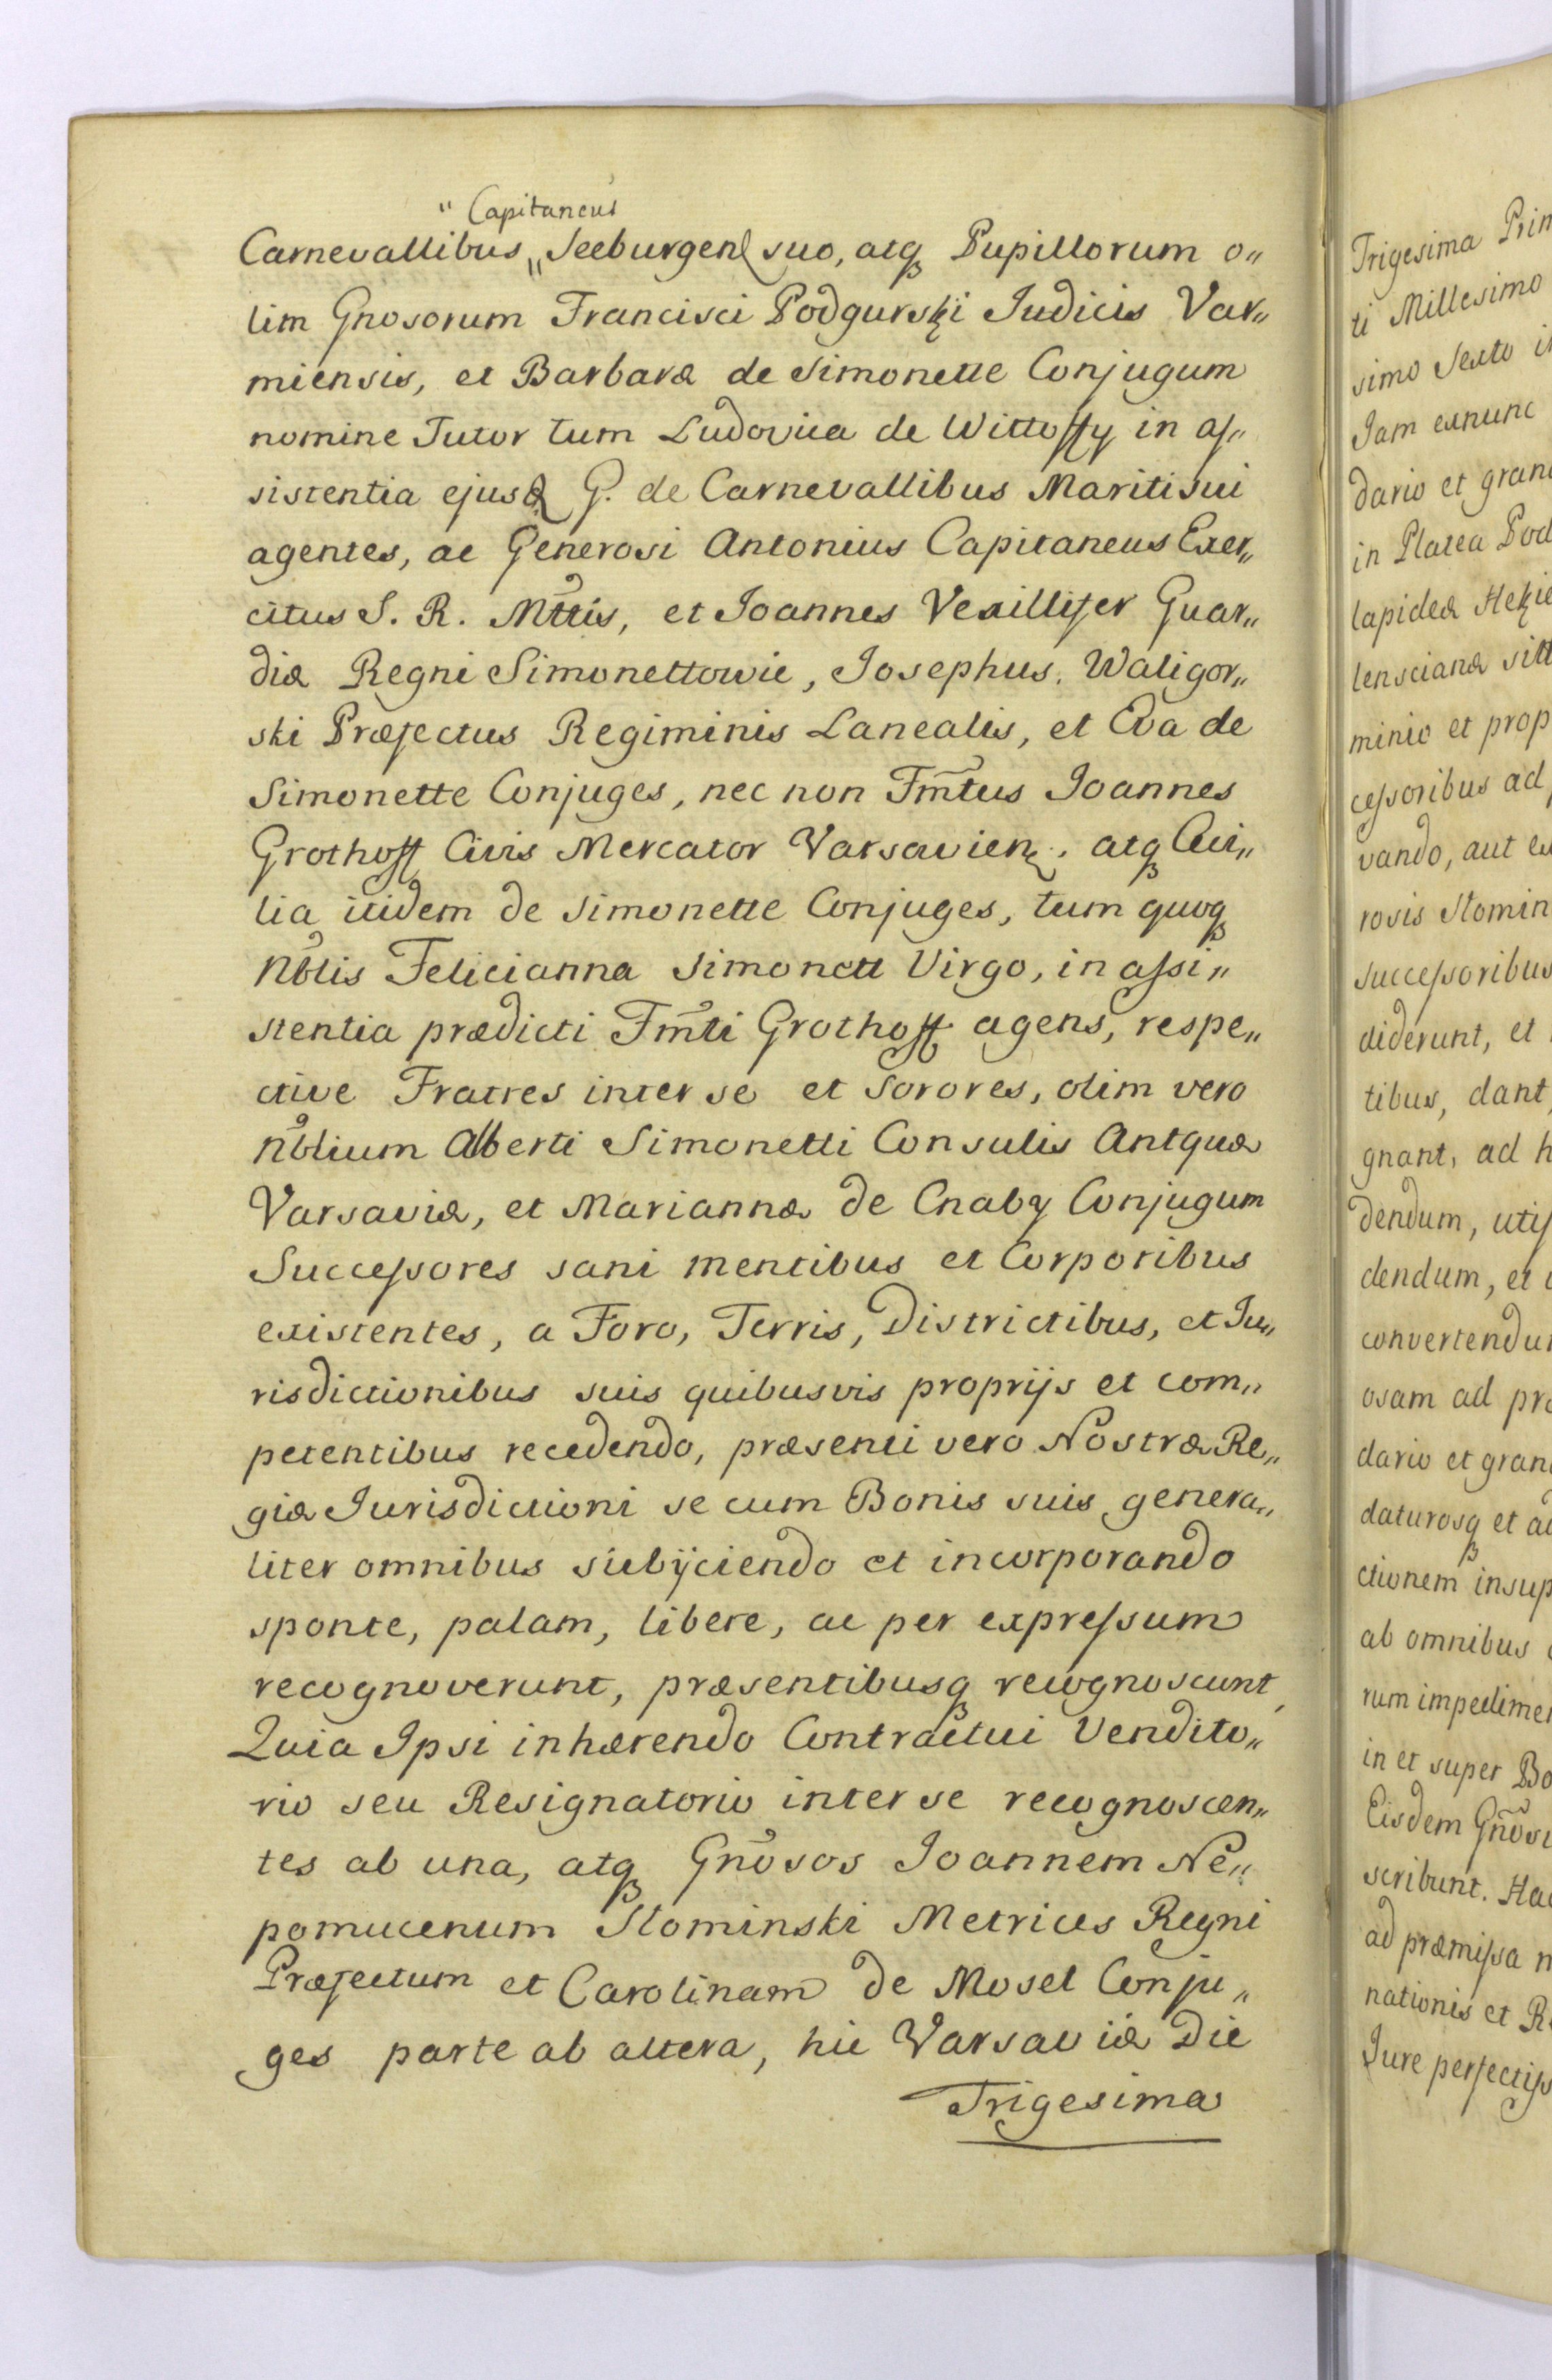 " Capitaneus
Carnevallibus „ Seeburgen suo, atq Pupillorum o„
lim Gnosorum Francisci Podgurski Judicis Var„
miensis, et Barbaræ de Simonette Conjugum
nomine Tutor tum Ludovica de Wittoffy in aſ„
sistentia ejusd G. de Carnevallibus Mariti sui
agentes, ac Generosi Antonius Capitaneus Exer„
citus S. R. Mttis, et Joannes Vexillifer Guar„
diæ Regni Simonettowie, Josephus Waligor„
ski Præfectus Regiminis Lanealis, et Eva de
Simonette Conjuges, nec non Fmtus Joannes
Grothoff Civis Mercator Varsavien. atq Cæci„
lia itidem de Simonette Conjuges, tum quoq
Nblis Felicianna Simonett Virgo, in aſsi„
stentia prædicti Fmti Grothoff agens, respe„
ctive Fratres inter se et Sorores, olim vero
Nblium Alberti Simonetti Consulis Antquæ
Varsaviæ, et Mariannæ de Cnaby Conjugum
Succeſsores sani mentibus et Corporibus
existentes, a Foro, Terris, Districtibus, et Ju„
risdictionibus suis quibusvis proprijs et com„
petentibus recedendo, præsenti vero Nostræ Re„
giæ Jurisdictioni se cum Bonis suis genera„
liter omnibus subijciendo et incorporando
sponte, palam, libere, ac per expreſsum
recognoverunt, præsentibusq recognoscunt
Quia Ipsi inhærendo Contractui Vendito„
rio seu Resignatorio inter se recognoscen„
tes ab una, atq Gnosos Joannem Ne„
pomucenum Slominski Metrices Regni
Præfectum et Carolinam de Mosel Conju„
ges parte ab altera, hic Varsaviæ Die
Trigesima
Trigesima Prim
ti Millesimo
simo Sexto i
Jam exnunc
dario et gran
in Platea Pod
lapideæ
lenscianæ sitt
minio et prop
ceſsoribus ad
vando, aut ex
rosis Slomin
succeſsoribus
diderunt, et
tibus, dant,
gnant, ad h
dendum, utiſ
dendum, et
convertendu
osam ad pr
dario et gran
daturosq et a
ctionem insup
ab omnibus
rum impedime
in et super Bo
Eisdem Gnosi
scribunt. Ha
ad præmiſsa n
nationis et R
Jure perfectiſs